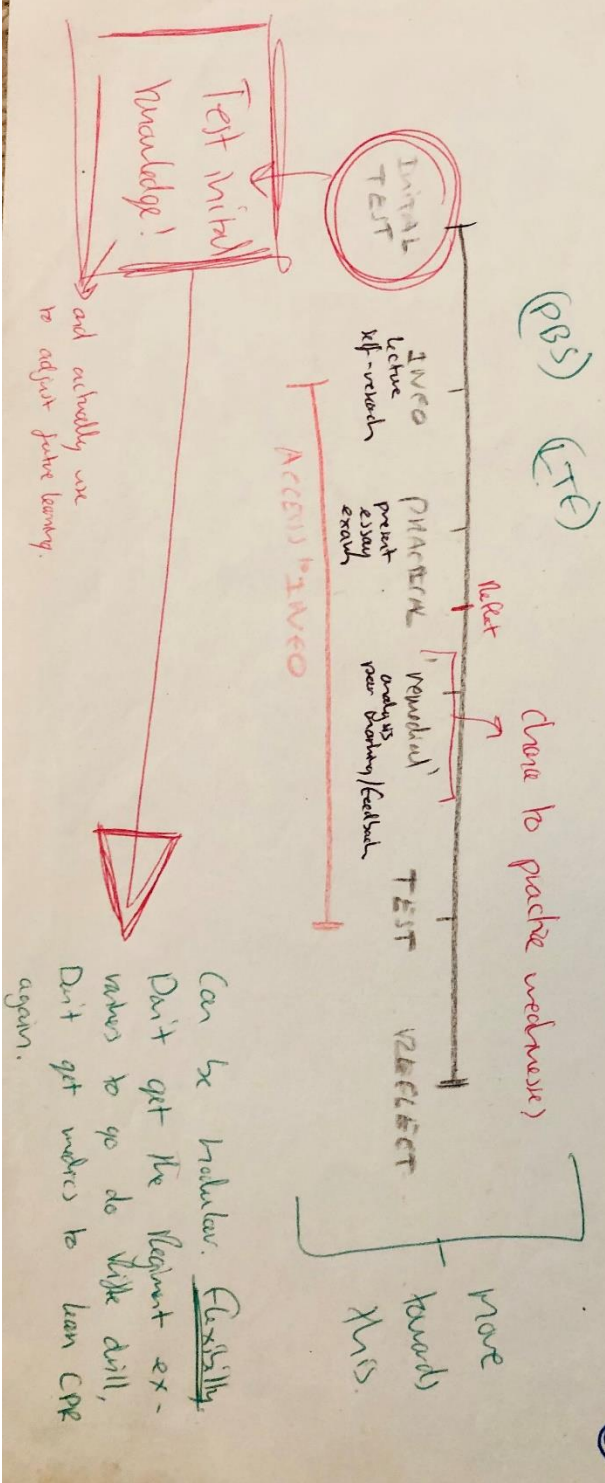 (PBS) (LTE)
chance to practise weaknesses)
Move
towards
this.
Reflect
INITIAL
TEST
INFO
lecture
self-research
PRACTICAL
present
essay
exam
'remedial'
analysis
peer marking/feedback
TEST
REFLECT
ACCESS to INFO
Test initial
knowledge!
and actually use
to adjust future learning.
Can be modular. Flexibility.
Don't get the Regiment ex-
to go do rifle drill,
Don't get medics to learn CPR
again.